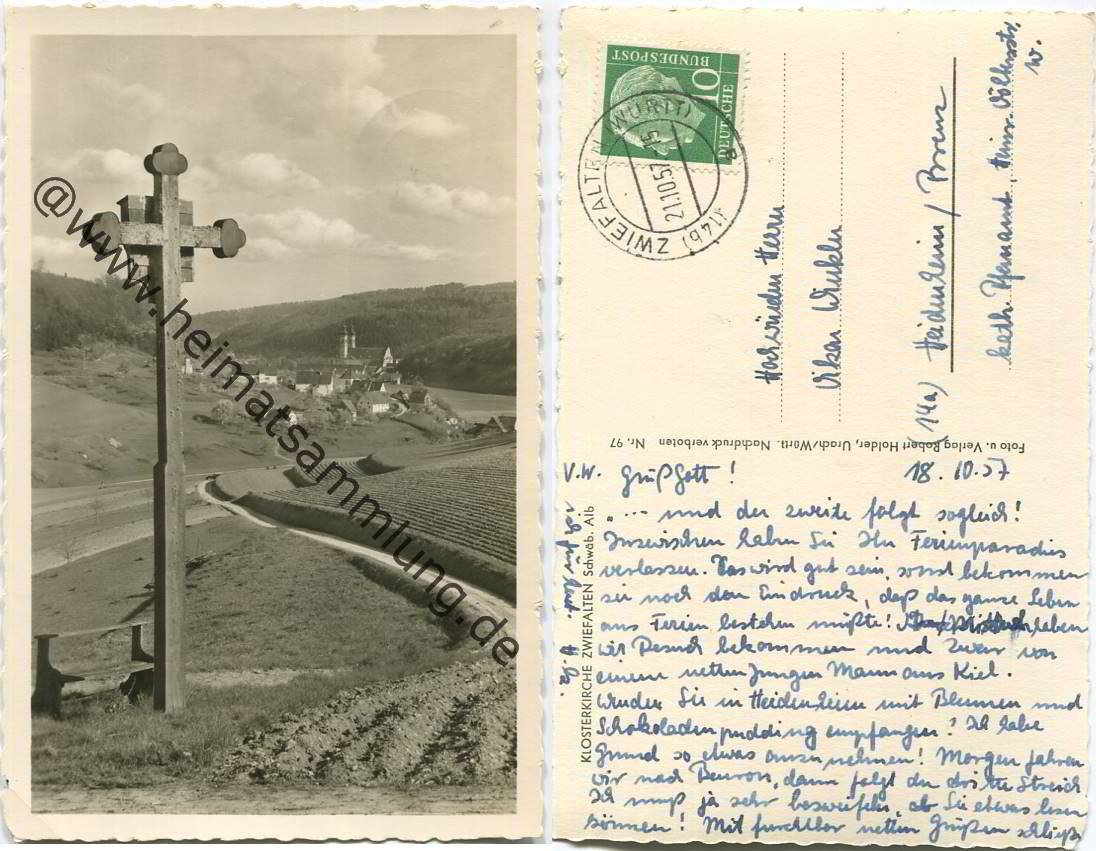 @www.heimatsammlung.de
DEUTSCHE
BUNDESPOST
10
(14b) ZWIEFALTEN (WÜRTT)
21.10.57
Hochwürden Herrn
Vikar Winkler
(14a) Heidenheim / Brenz
kath. Pfarramt
Foto u. Verlag Robert Holder, Urach/Württ. Nachdruck verboten Nr. 97
KLOSTERKIRCHE ZWIEFALTEN Schwäb. Alb
V.W. Grüß Gott! 18.10.57
"... und der zweite folgt sogleich!
Inzwischen haben Sie Ihr Ferienparadies
verlassen. Das wird gut sein, sonst bekommen
sie noch den Eindruck, daß das ganze Leben
aus Ferien bestehen müßte! haben
wir Besuch bekommen und zwar von
einem netten jungen Mann aus Kiel.
Wurden Sie in Heidenheim mit Blumen und
Schokoladenpudding empfangen? Ich habe
Grund so etwas anzunehmen! Morgen fahren
wir nach Beuron, dann folgt der dritte Streich
Ich muß ja sehr bezweifeln, ob Sie etwas lesen
können! Mit furchtbar netten Grüßen schließt